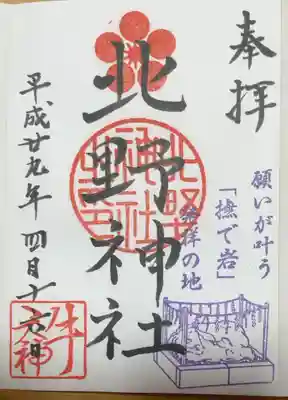 奉拝
願いが叶う
「撫で岩」
発祥の地
北野神社
平成廿九年四月十六日